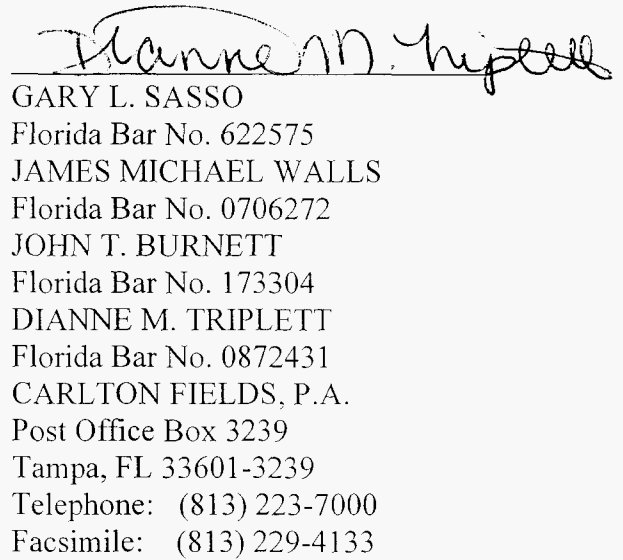 Dianne M. Triplett
GARY L. SASSO
Florida Bar No. 622575
JAMES MICHAEL WALLS
Florida Bar No. 0706272
JOHN T. BURNETT
Florida Bar No. 173304
DIANNE M. TRIPLETT
Florida Bar No. 0872431
CARLTON FIELDS, P.A.
Post Office Box 3239
Tampa, FL 33601-3239
Telephone: (813) 223-7000
Facsimile: (813) 229-4133